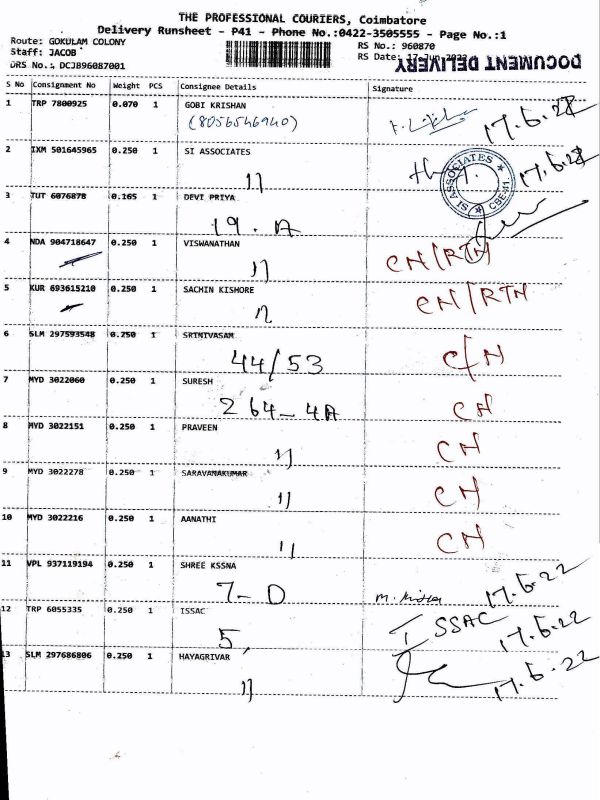 THE PROFESSIONAL COURIERS, Coimbatore
Delivery Runsheet - P41 - Phone No.:0422-3505555 - Page No.:1
Route: GOKULAM COLONY
RS No.: 960870
Staff: JACOB
RS Date: 17 Jun 2022
DRS No.: DCJB96087001
DOCUMENT DELIVERY
S No Consignment No Weight PCS Consignee Details Signature
1 TRP 7800925 0.070 1 GOBI KRISHAN
(8056546940) 17.6.22
2 IXM 501645965 0.250 1 SI ASSOCIATES
17.6.22
SI ASSOCIATES CBE-41.
3 TUT 6076878 0.165 1 DEVI PRIYA
19. A
4 NDA 904718647 0.250 1 VISWANATHAN
11 CN/RTN
5 KUR 693615210 0.250 1 SACHIN KISHORE
11 CN/RTN
6 SLM 297593548 0.250 1 SRINIVASAM
44/53 C/N
7 MYD 3022060 0.250 1 SURESH
264-4A CN
8 MYD 3022151 0.250 1 PRAVEEN
11 CN
9 MYD 3022278 0.250 1 SARAVANAKUMAR
11 CN
10 MYD 3022216 0.250 1 AANATHI
11 CN
11 VPL 937119194 0.250 1 SHREE KSSNA
7-D 17.6.22
12 TRP 6055335 0.250 1 ISSAC
5, ISSAC 17.6.22
13 SLM 297686806 0.250 1 HAYAGRIVAR
11 17.6.22